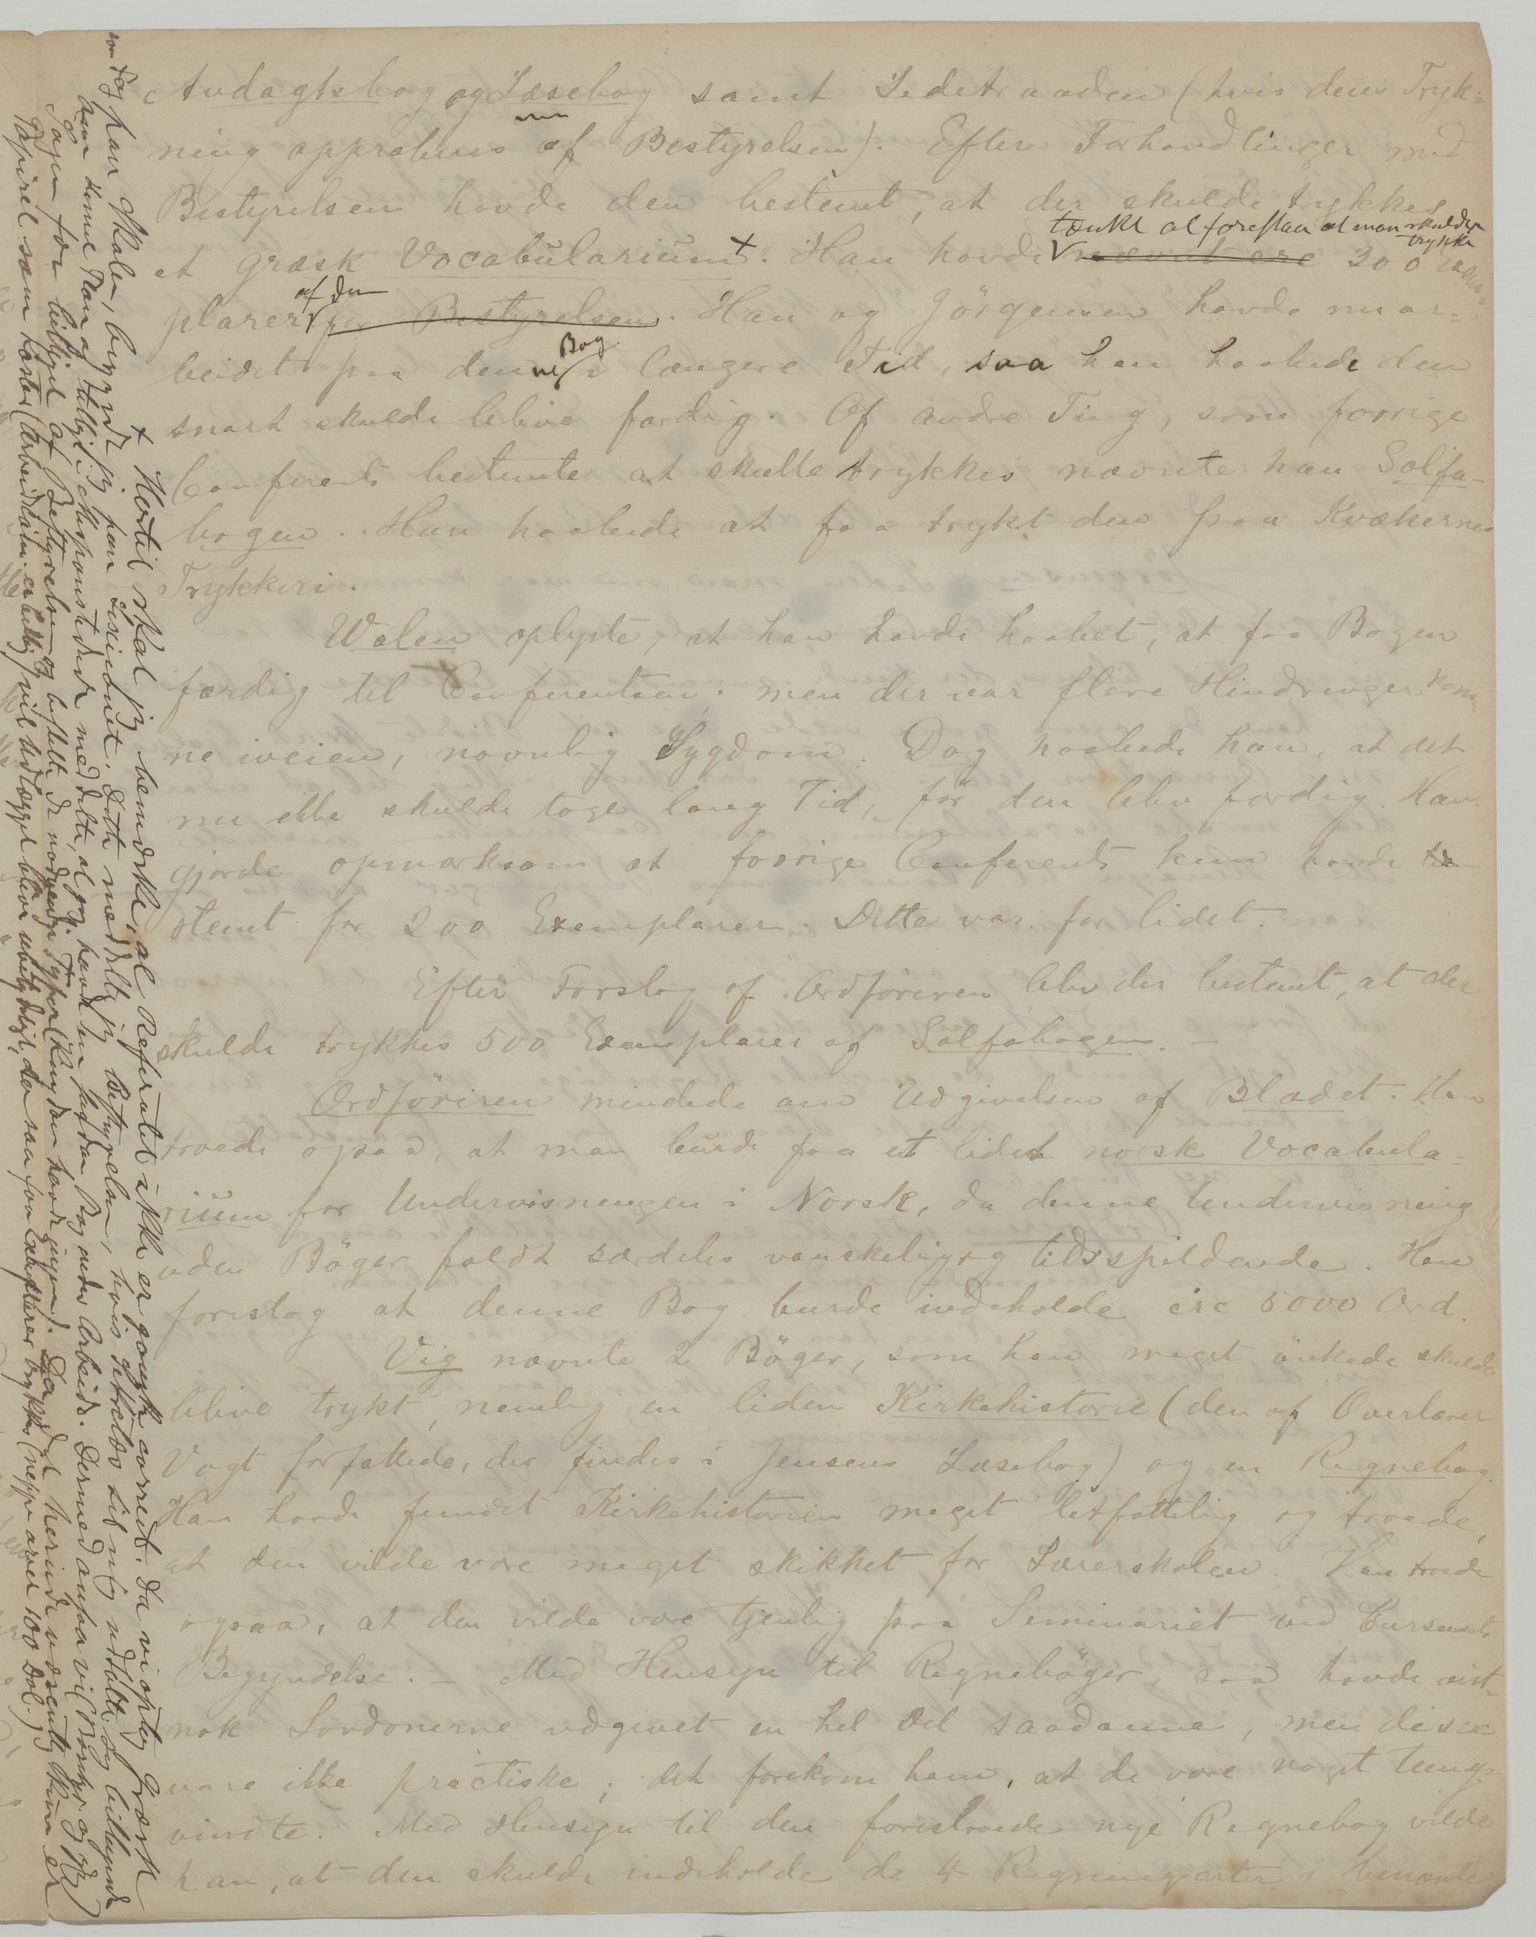 Andagtsbog og Læsebog samt Ledetraaden (hvis dens Tryk-
ning approberes af Bestyrelsen). Efter Forhandlinger med
Bestyrelsen havde den bestemt, at der skulde trykkes
et græsk Vocabularium +. Han havde tænkt at foreslaa at man skulde trykke 300 Exem-
plarer af den. Han og Jörgensen havde nu ar-
beidet paa denne Bog i længere Tid, saa han haabede den
snart skulde blive færdig. Af andre Ting, som forrige
Conferents bestemte at skulle trykkes nævnte han Solfa-
bogen. Han haabede at faa trykt den paa Kvækernes
Trykkeri.
Walen oplyste, at han havde haabet, at faa Bogen
færdig til Conferentsen; men der var flere Hindringer kom-
ne iveien, navnlig Sygdom. Dog haabede han, at det
nu ikke skulde tage lang Tid, för den blev færdig. Han
gjorde opmærksom at forrige Conferents kun havde be
stemt for 200 Exemplarer. Dette var for lidet.
Efter Forslag af Ordföreren blev der bestemt, at der
skulde trykkes 500 Exemplarer af Solfabogen. –
Ordföreren mindede om Udgivelsen af Bladet. Han
troede ogsaa, at man burde faa et lidet norsk Vocabula-
rium for Undervisningen i Norsk, da denne Undervisning
uden Böger faldt særdeles vanskelig og tidsspildende. Han
foreslog at denne Bog burde indeholde circ 5000 Ord.
Vig nævnte 2 Böger, som han meget önskede skulde
blive trykt, nemlig en liden Kirkehistorie (den af Overlærer
Vogt forfattede, der findes i Jensens Læsebog) og en Regnebog.
Han havde fundet Kirkehistorien meget letfattelig og troede,
at den vilde være meget skikket for Lærerskolen. Han troede
ogsaa, at den vilde være tjenlig paa Seminariet ved Cursets
Begyndelse. – Med Hensyn til Regneböger, saa havde vist-
nok Londonerne udgivet en hel Del saadanne, men disse
vare ikke practiske; det forekom ham, at de vare noget tung-
vindte. Med Hensyn til den foreslaaede nye Regnebog vilde
han, at den skulde indeholde de 4 Regningsarter i Benævnte
+ Hertil skal jeg bemærke, at Referatet ikke er ganske correct. Da vi optog Græsk
som Fag paa Skolen, begyndte jeg paa Lexiconet. Dette meddelte jeg Bestyrelsen, hvis Sekretær lod mig udtale sig billigende
om denne Plan og tillige i meddelte, at jeg havde en saadan Bog under Arbeide. Dermed ansaa vi Borgen og jeg
Sagen for billiget af Bestyrelsen og bestilte de nødvendige Typer herinde væsentlig kun er
Papiret som koster (Arbeidslön er billig) vil Udlægget blive ubetydeligt, da saa faa Exemplarer trykkes (neppe over 100 Dol.)